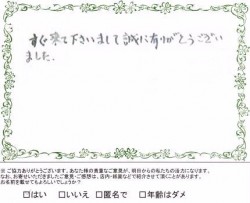 すぐ来て下さいまして誠に有りがとうござい
ました.
※ご協力ありがとうございます。あなた様の貴重なご意見が、明日からの私たちの活力になります。
なお、お寄せいただきましたご意見・ご感想は、店内・紙面などで紹介させて頂くことがあります。
お名前を載せてもよろしいでしょうか?
□はい □いいえ □匿名で □年齢はダメ